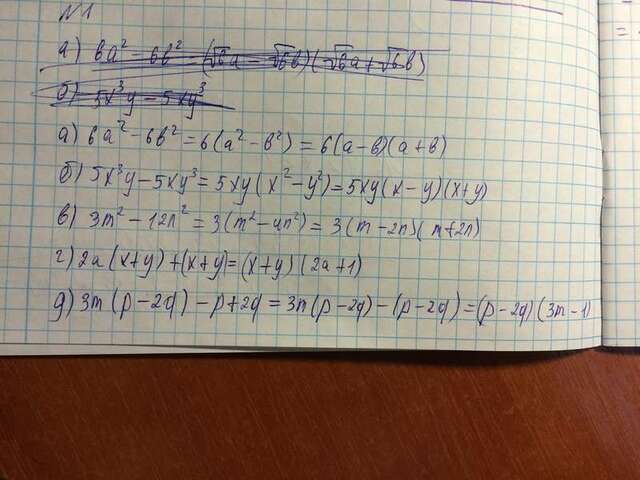 №1
а) 6а² - 6в² = (√6а - √6в)(√6а + √6в)
б) 5x³y - 5xy³
а) 6а² - 6в² = 6(а² - в²) = 6(а-в)(а+в)
б) 5x³y - 5xy³ = 5xy(x² - y²) = 5xy(x-y)(x+y)
в) 3m² - 12n² = 3(m² - 4n²) = 3(m - 2n)(m+2n)
г) 2а(x+y) + (x+y) = (x+y)(2а+1)
д) 3m(p - 2q) - p + 2q = 3m(p - 2q) - (p - 2q) = (p - 2q)(3m - 1)